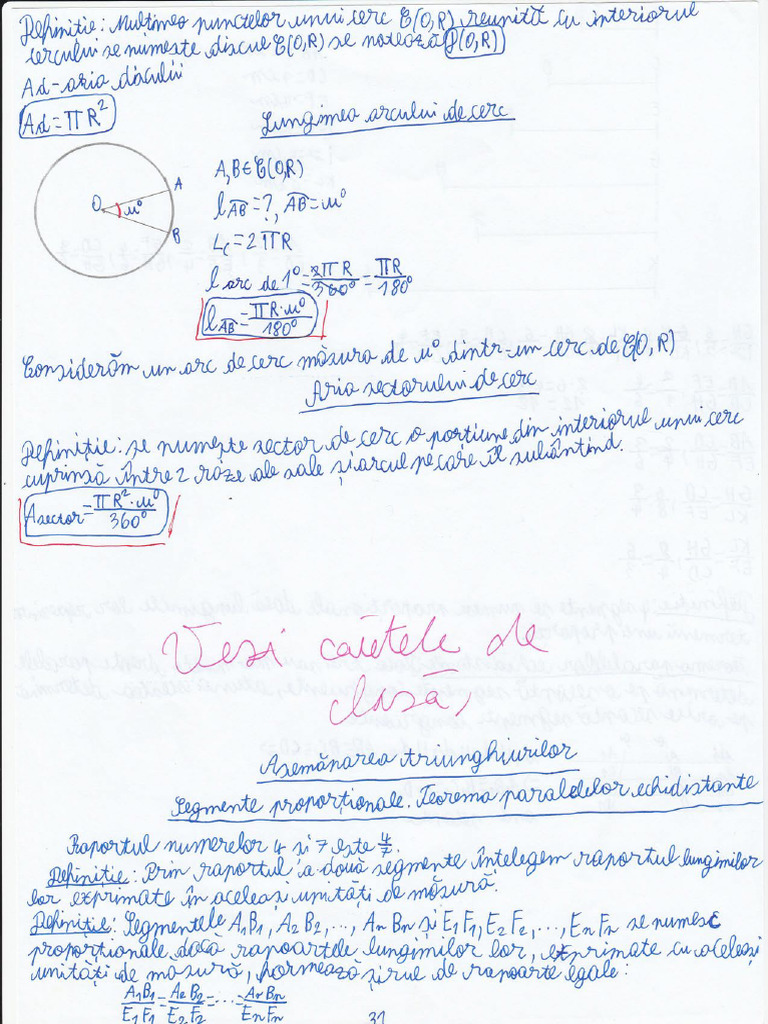 Definiție: Mulțimea punctelor unui cerc C(O,R) reunită cu interiorul
cercului se numește discul C(O,R) se notează D(O,R)
Ad-aria discului
Ad=πR²
Lungimea arcului de cerc
O
A
B
u°
A,B∈C(O,R)
l AB=?, AB=u°
Lc=2πR
l arc de 1°=2πR/360°=πR/180°
l AB=πR·u°/180°
Considerăm un arc de cerc măsura de u° dintr-un cerc de C(O,R)
Aria sectorului de cerc
Definiție: se numește sector de cerc o porțiune din interiorul unui cerc
cuprinsă între 2 raze ale sale și arcul pe care îl subântind.
Asector=πR²·u°/360°
Vezi caietele de
clasă,
Asemănarea triunghiurilor
Segmente proporționale. Teorema paralelelor echidistante
Raportul numerelor 4 și 7 este 4/7.
Definiție: Prin raportul a două segmente înțelegem raportul lungimilor
lor exprimate în aceleași unități de măsură.
Definiție: Segmentele A1B1, A2B2, ..., AnBn și E1F1, E2F2, ..., EnFn se numesc
proporționale dacă rapoartele lungimilor lor, exprimate cu aceleași
unități de măsură, formează șirul de rapoarte egale:
A1B1/E1F1=A2B2/E2F2=...=AnBn/EnFn
31